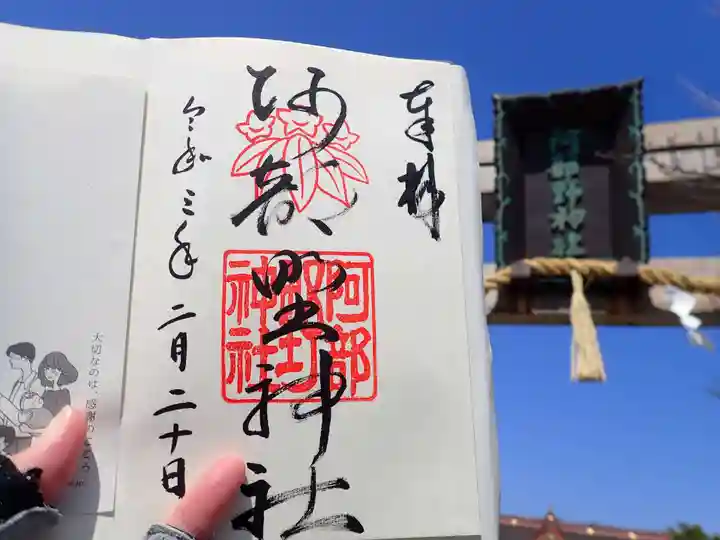 奉拝
阿部野神社
阿部野神社
令和三年二月二十日
阿部野神社
大切なのは、感謝のこころ